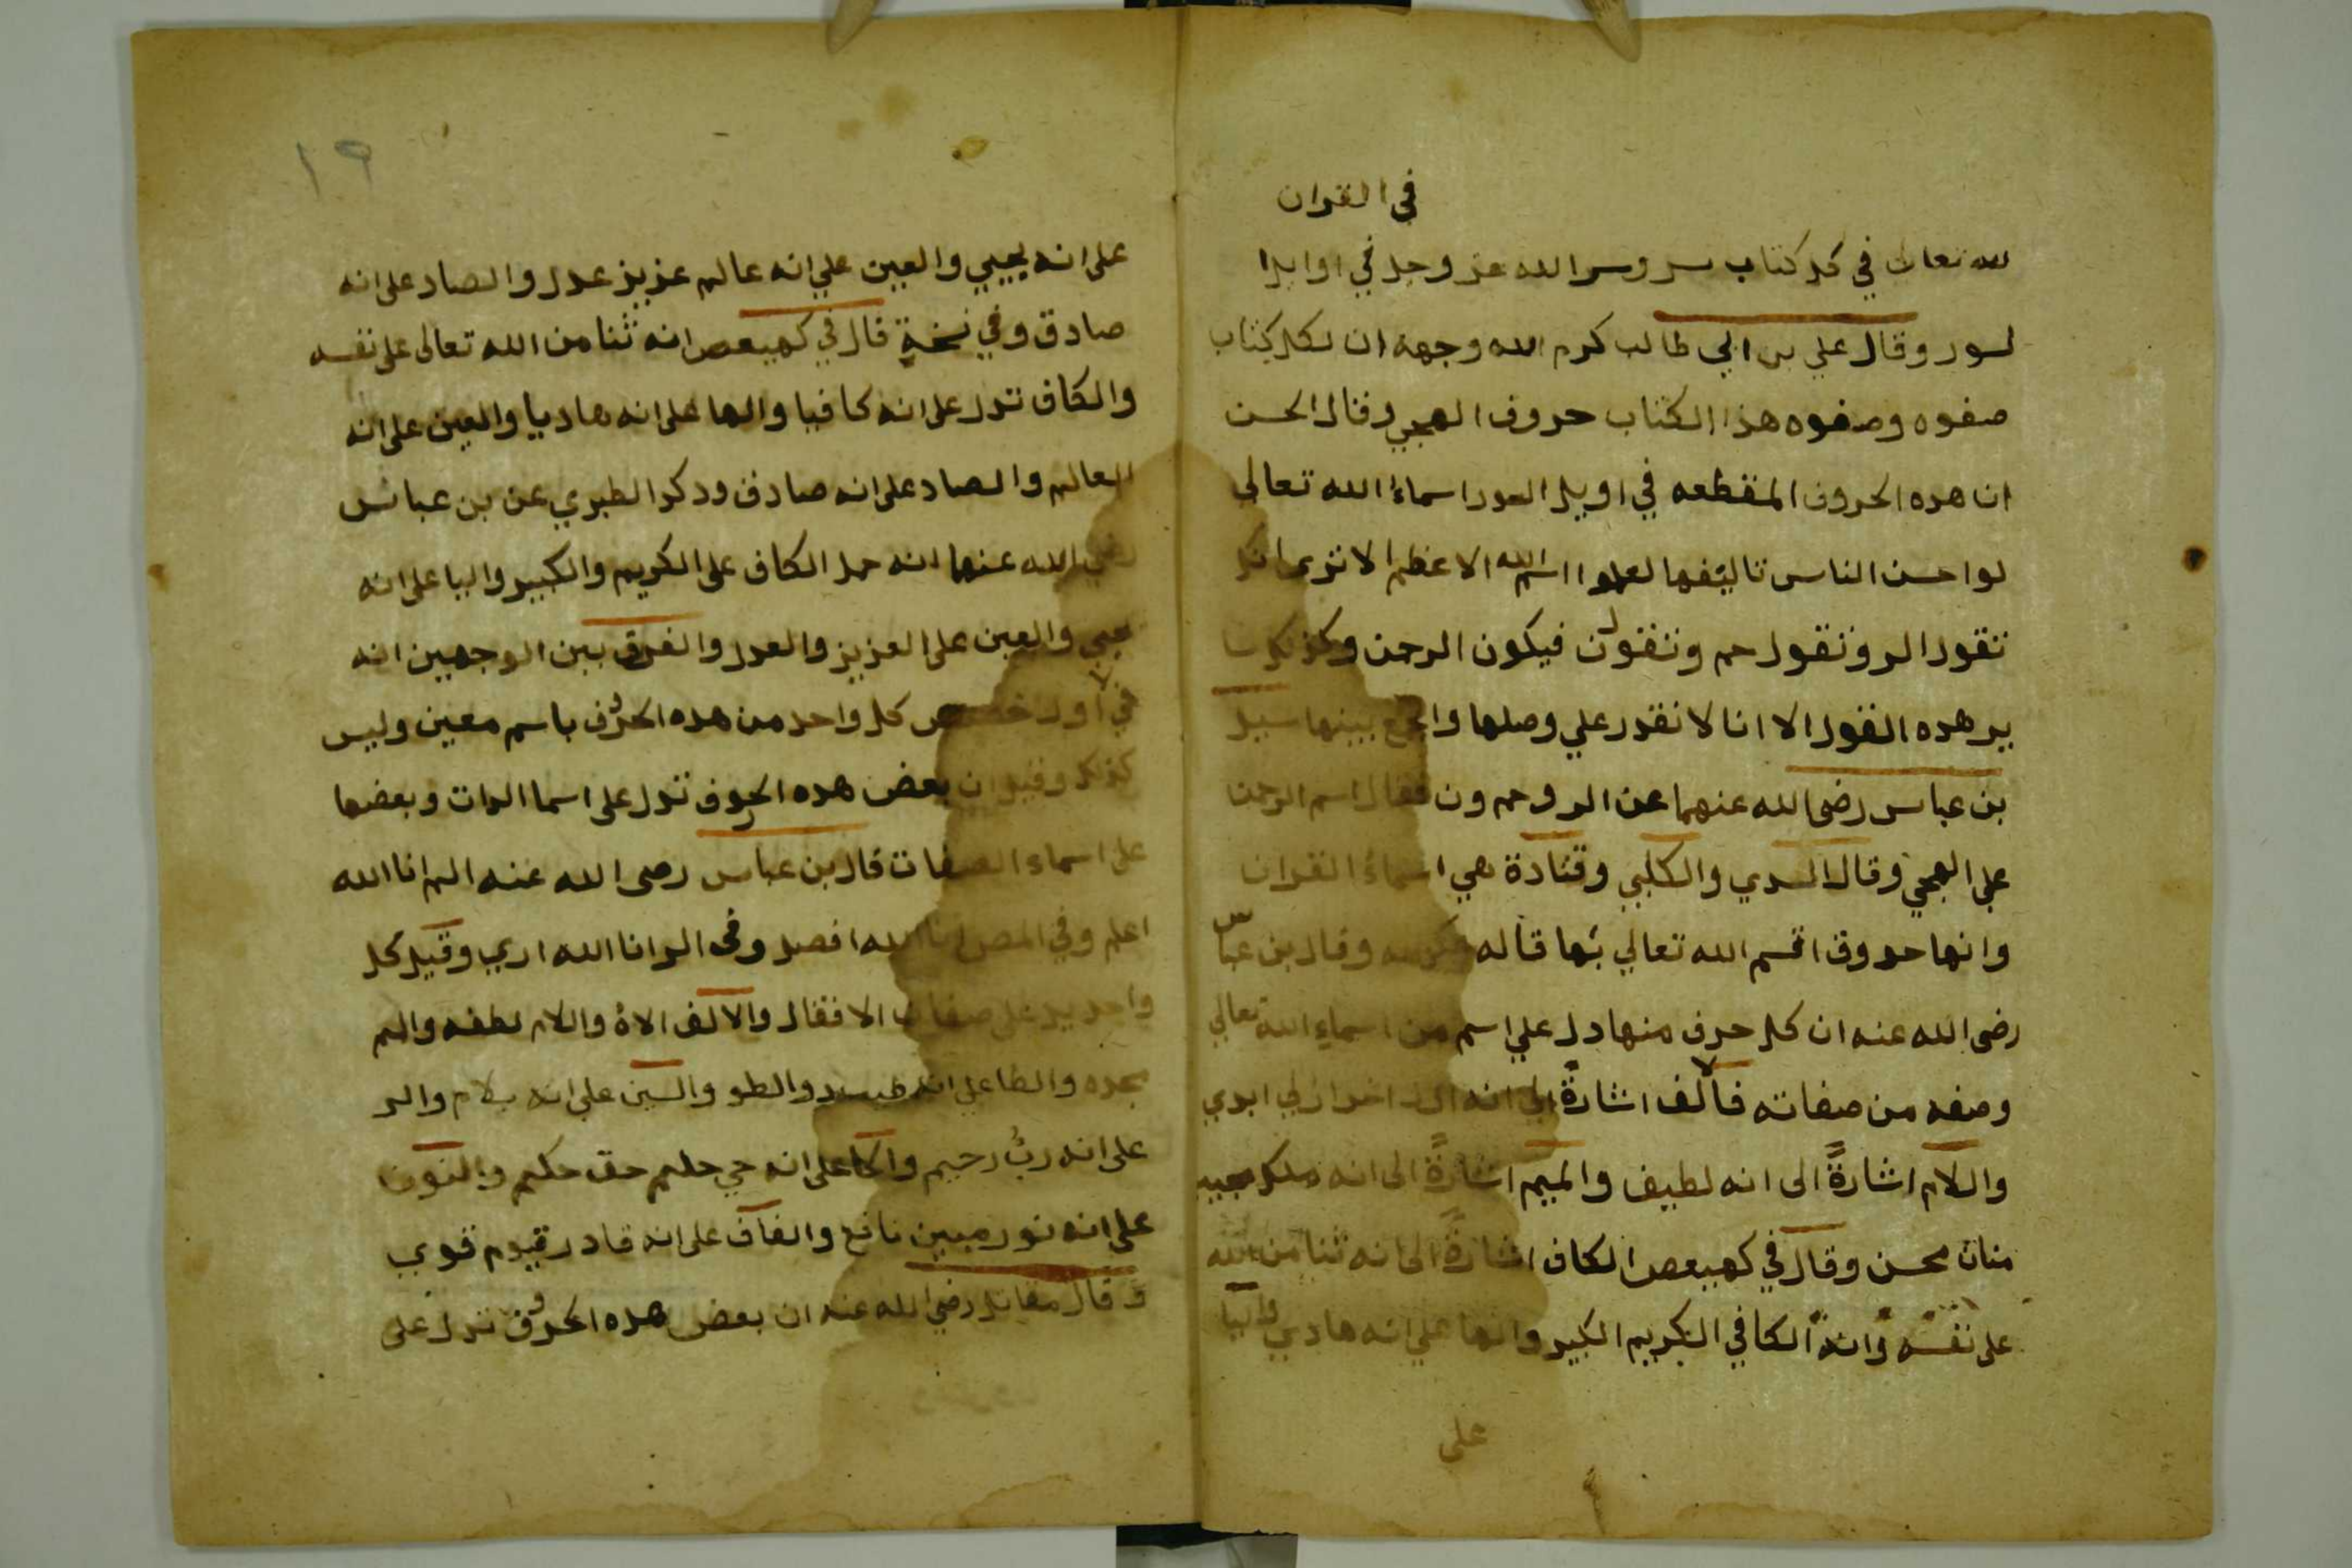 في القران
لله تعالى في كل كتاب سر وسر الله عز وجل في اوايل
لسور وقال علي بن ابي طالب كرم الله وجهه ان لكل كتاب
صفوه وصفوه هذا الكتاب حروف الهجي وقال الحسن
ان هده الحروف المقطعه في اويل السور اسماء الله تعالى
لو احسن الناس تاليفها لعلموا اسم الله الاعظم الا ترى انك
تقول الر وتقول حم وتقول ن فيكون الرحمن وكذلك
ير هده القول الا انا لا نقدر علي وصلها والجمع بينها سيل
بن عباس رضى الله عنهما عن الر وحم ون فقال اسم الرحمن
علي الهجي وقال السدي والكلبي وقتادة هي اسماء القران
وانها حروف اقسم الله تعالي بها قاله عكرمه وقال بن عباس
رضى الله عنه ان كل حرف منها دل علي اسم من اسماء الله تعالي
وصفه من صفاته فالالف اشارة الى انه اول اخر ازلي ابدي
واللام اشارة الى انه لطيف والميم اشارة الى انه ملك مجيد
منان محسن وقال في كهيعص الكاف اشارة الى انه ثنا من الله
على نفسه وانه الكافي الكريم الكبير والها علي انه هادي واليا
على
١٩
على انه يجيي والعين علي انه عالم عزيز عدل والصاد على انه
صادق وفي نسخة قال في كهيعص انه ثنا من الله تعالى على نفسه
والكاف تدل على انه كافيا والها على انه هاديا والعين على انه
العالم والصاد على انه صادق ودكر الطبري عن بن عباس
رضي الله عنهما انه حمل الكاف على الكريم والكبير واليا على انه
يجيي والعين على العزيز والعدل والفرق بين الوجهين انه
في الاول خصص كل واحد من هده الحروف باسم معين وليس
كذلك وقيل ان بعض هده الحروف تدل على اسما الدات وبعضها
على اسماء الصفات قال بن عباس رضى الله عنه الم انا الله
اعلم وفي المص انا الله افصل وفى الر انا الله اري وقيل كل
واحد يدل على صفات الافعال والالف الاؤه واللام لطفه والميم
مجده والطا علي انه والسين علي انه سلام والر
على انه رب رحيم والحا على انه حي حليم حق حكيم والنون
على انه نور مبين نافع والقاف على انه قادر قيوم قوي
وقال مقاتل رضي الله عنه ان بعض هده الحروف تدل على